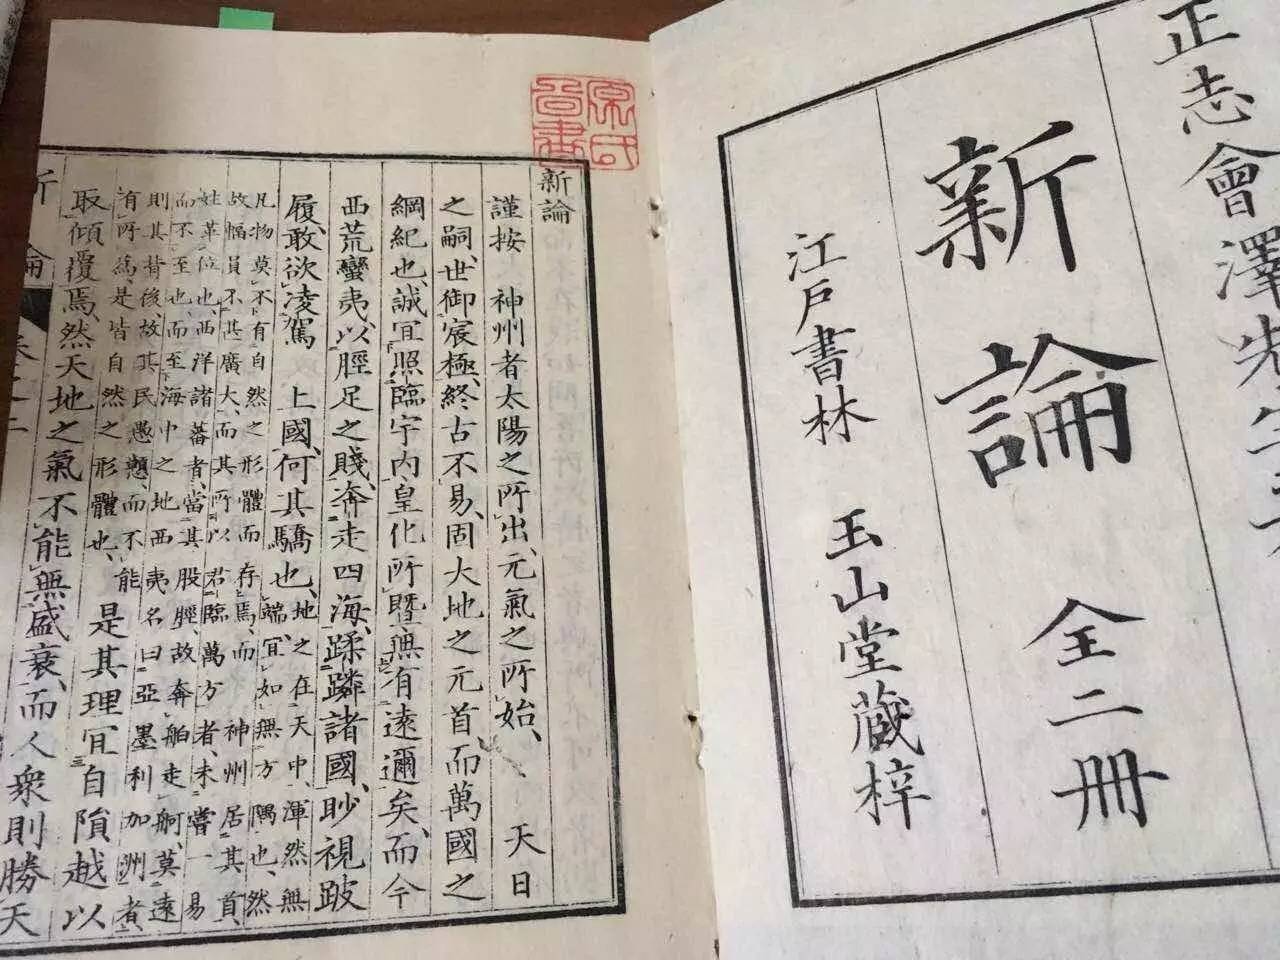 正志會澤先生
新論 全二冊
江戸書林 玉山堂蔵梓
新論
謹按 神州者太陽之所出、元氣之所始、天日
之嗣、世御宸極、終古不易、固大地之元首、而萬國之
綱紀也、誠宜照臨宇內、皇化所曁無有遠邇矣、而今
西荒蠻夷、以脛足之賤、奔走四海、蹂躪諸國、眇視跛
履、敢欲凌駕 上國、何其驕也、
地之在天中、渾然無
端、宜如無方隅也、然
凡物莫不有自然之形體而存焉、而神州居其首、
故幅員不甚廣大、而其所以君臨萬方者、未嘗一易
姓革位也、西洋諸蕃者、當其股脛、故奔舶走舸、莫遠
而不至也、而至海中之地西夷名曰亞墨利加洲者、
則其背後、故其民愚戇、而不能
有所爲、是皆自然之形體也、
是其理宜自隕越以
取傾覆焉、然天地之氣不能無盛衰、而人衆則勝天